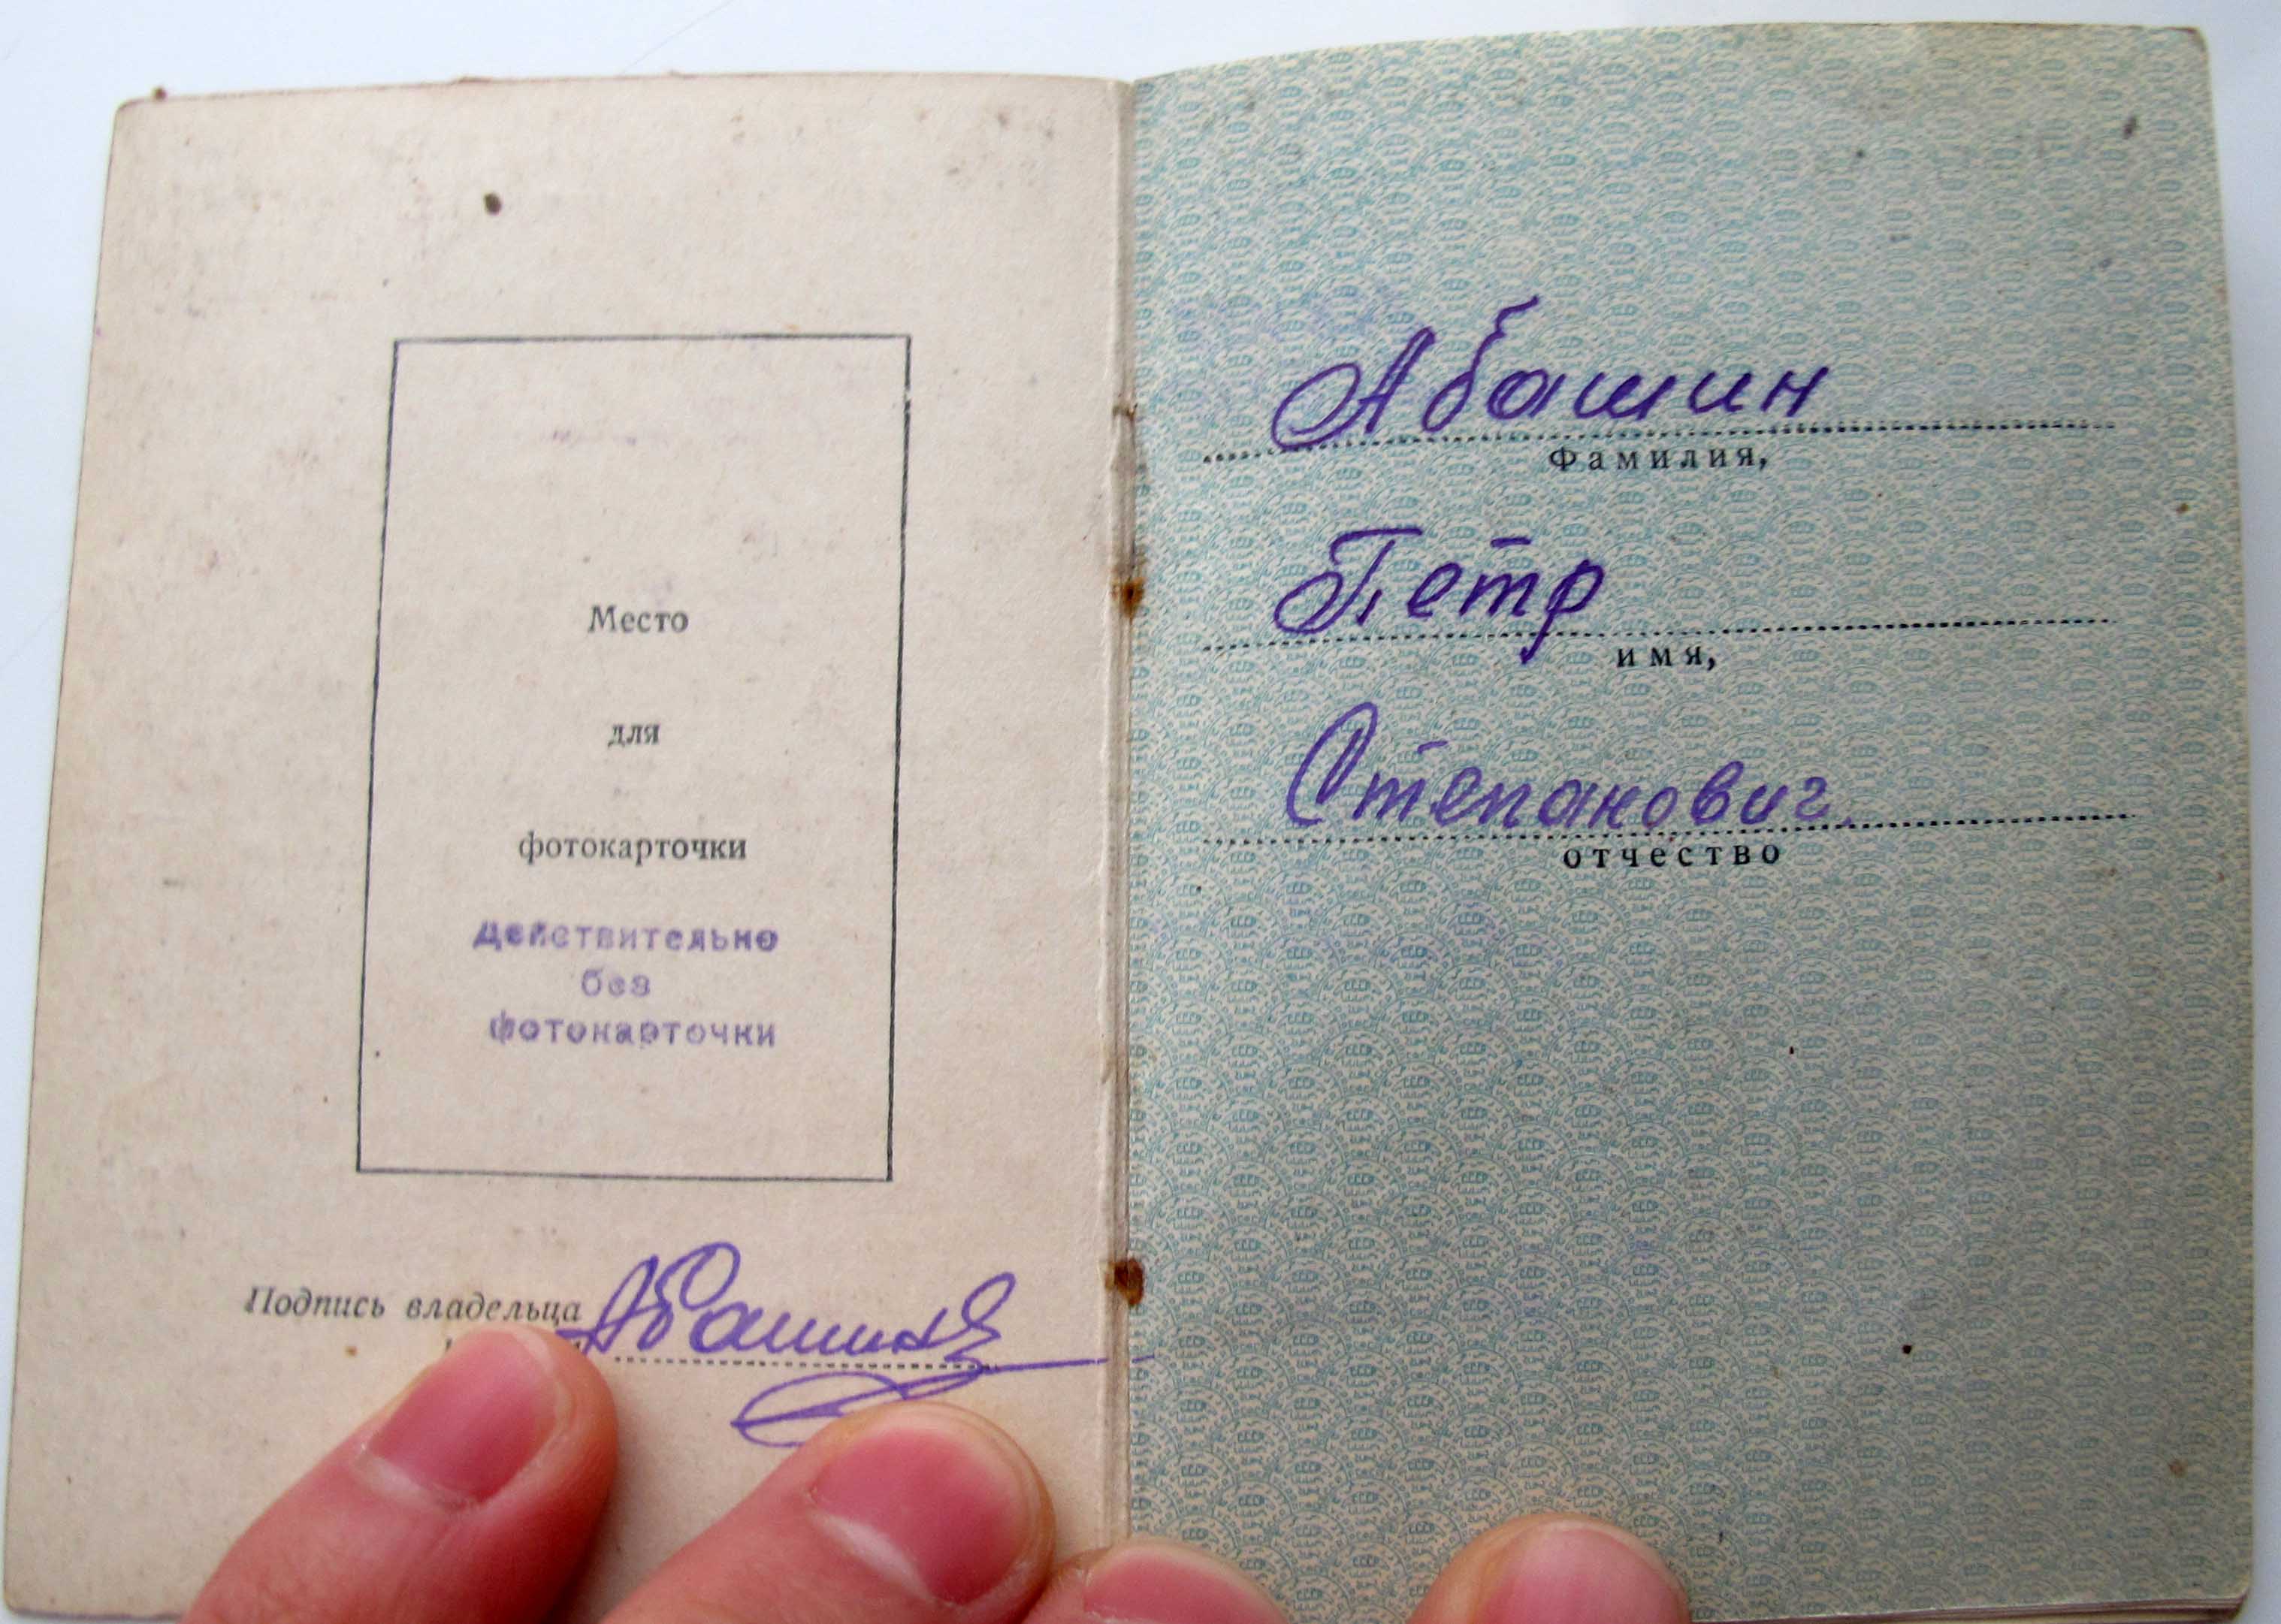 Место
для
фотокарточки
действительно
без
фотокарточки
Подпись владельца
Абашин
Абашин
Фамилия,
Петр
имя,
Степанович
отчество